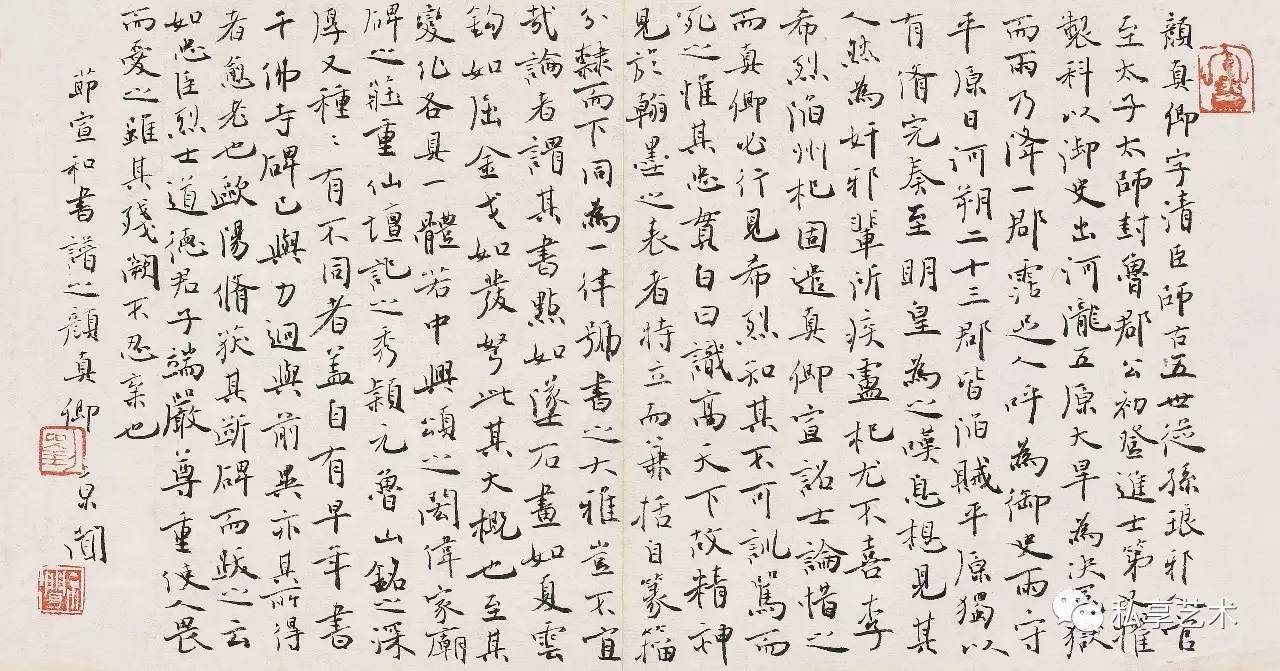 顏真卿字清臣師古五世從孫琅邪人官
至太子太師封魯郡公初登進士第又擢
製科以御史出河隴五原大旱為決冤獄
而雨乃降一郡霑足人呼為御史雨守
平原日河朔二十三郡皆陷賊平原獨以
有脩完奏至明皇為之嘆息想見其
人然為奸邪輩所疾盧杞尤不喜李
希烈陷州杞固遣真卿宣詔士論惜之
而真卿必行見希烈知其不可訓罵而
死之惟其忠貫白日識高天下故精神
見於翰墨之表者特立而兼括自篆籀
分隸而下同為一律號書之大雅豈不宜
哉論者謂其書點如墜石畫如夏雲
鈎如屈金戈如發弩此其大概也至其
變化各具一體若中興頌之閎偉家廟
碑之莊重仙壇記之秀穎元魯山銘之深
厚又種〻有不同者蓋自有早年書
千佛寺碑已與力迥與前異亦其所得
者愈老也歐陽脩獲其斷碑而跋之云
如忠臣烈士道德君子端嚴尊重使人畏
而愛之雖其殘闕不忍棄也
節宣和書譜之顏真卿 京聞
私享艺术